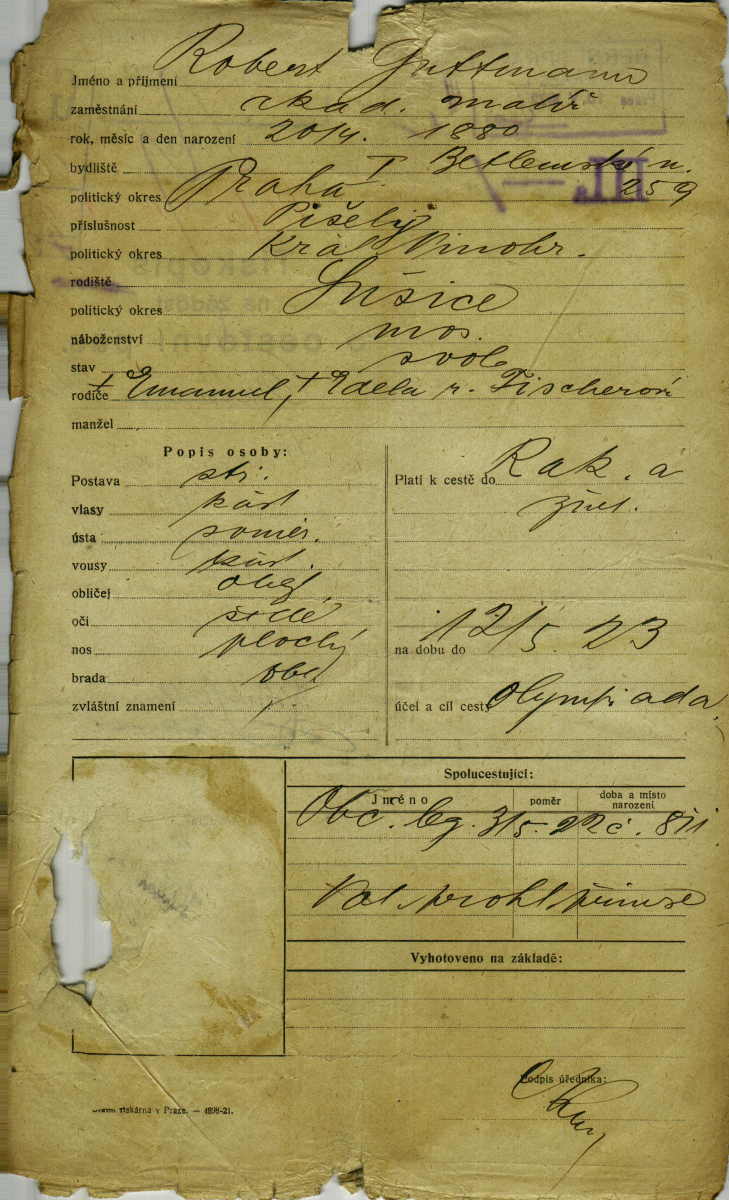 Jméno a příjmení Robert Guttmann
zaměstnání akad. malíř
rok, měsíc a den narození 20/4. 1880
bydliště I Betlemská u.
politický okres Praha 259
příslušnost Pišely
politický okres Král Vinohr.
rodiště Sušice
politický okres
náboženství mos.
stav svob
rodiče † Emanuel, † Edela r. Fischerová
manžel
Popis osoby:
Postava stř.
vlasy
ústa soměr.
vousy
obličej
oči šedé
nos plochý
brada
zvláštní znamení
Platí k cestě do Rak. a
na dobu do 12/5. 23
účel a cíl cesty Olympiada
III.
Spolucestující:
Jméno poměr doba a místo narození
Obč. leg. 3/5. 22 č. 811
Vyhotoveno na základě:
Podpis úředníka:
Státní tiskárna v Praze. — 4898-21.